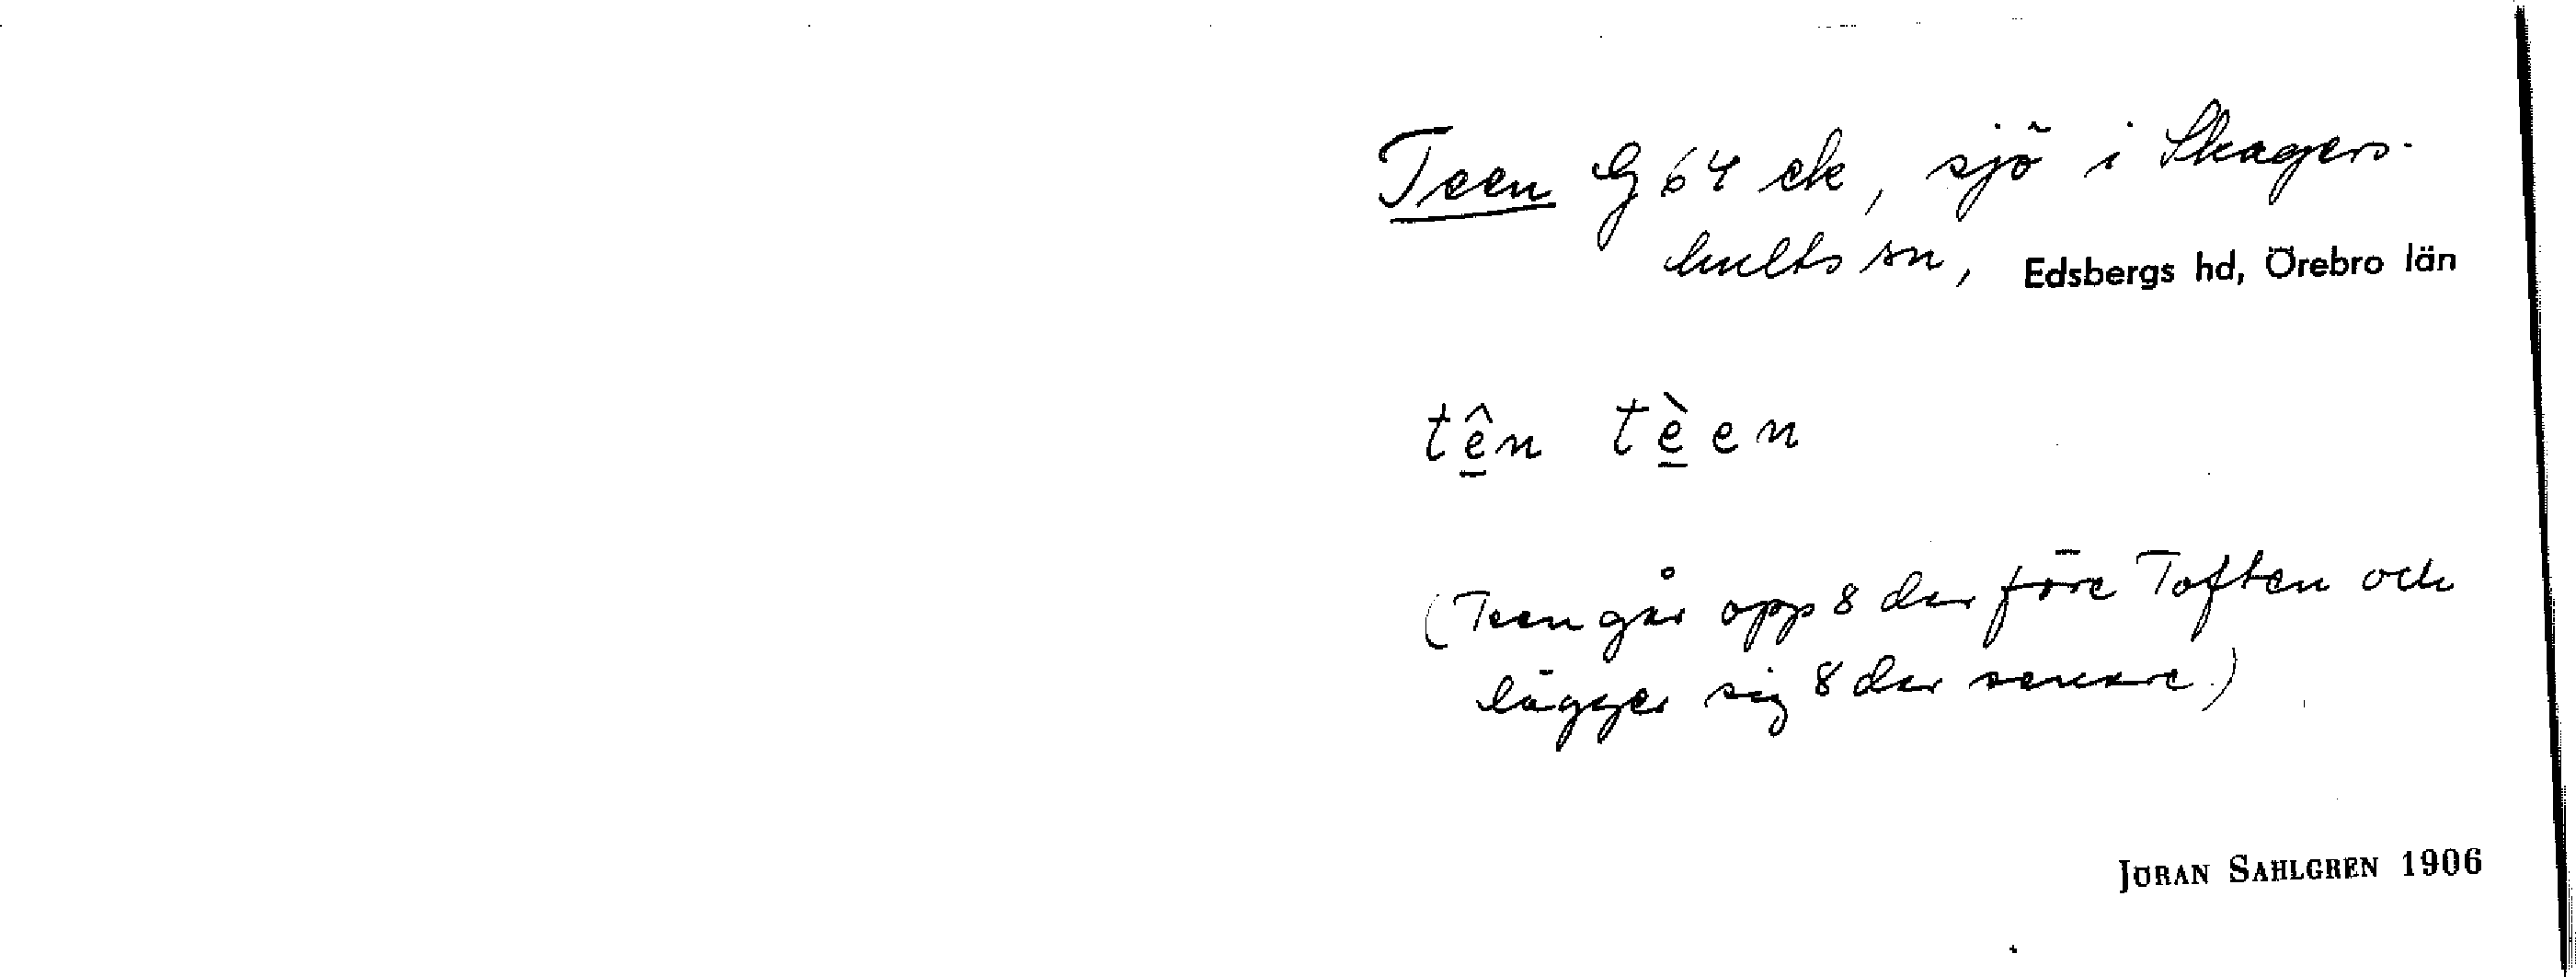 Teen G 64 ek, sjö i Skagers-
hults sn, Edsbergs hd, Örebro län
tê̱n tè̱en
(Teen går opp 8 dar före Toften och
lägger sig 8 dar senare.)
JÖRAN SAHLGREN 1906